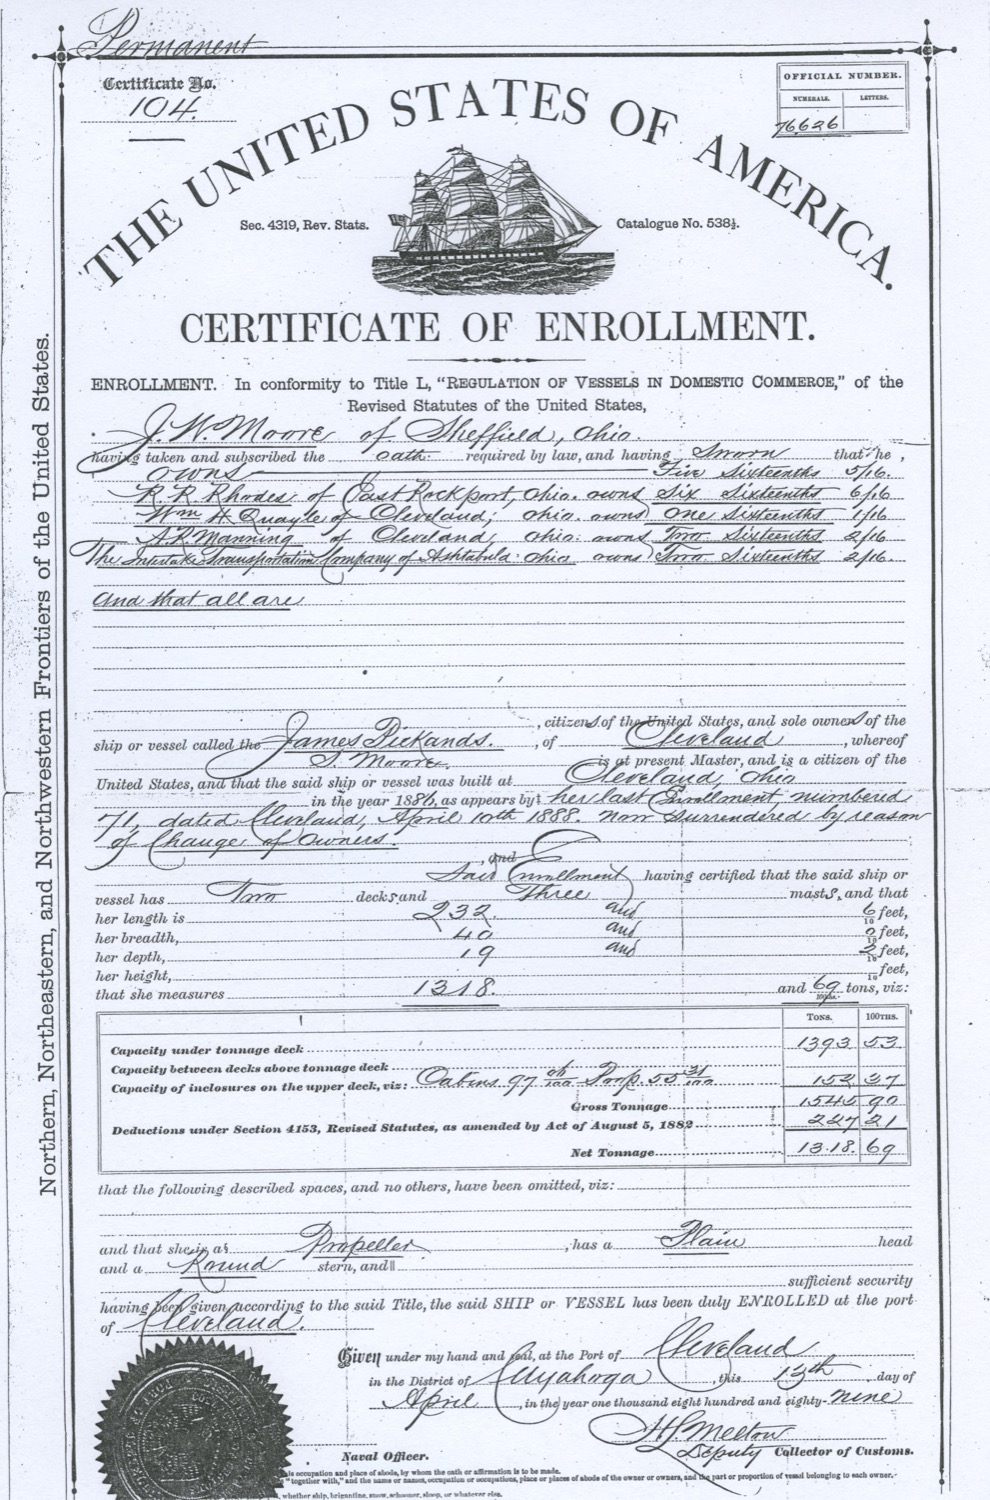 Permanent
Certificate No.
104.
OFFICIAL NUMBER.
NUMERALS. LETTERS.
76626
THE UNITED STATES OF AMERICA.
Sec. 4319, Rev. Stats.
Catalogue No. 538½.
CERTIFICATE OF ENROLLMENT.
ENROLLMENT. In conformity to Title L, "REGULATION OF VESSELS IN DOMESTIC COMMERCE," of the
Revised Statutes of the United States,
J. W. Moore of Sheffield, Ohio.
having taken and subscribed the oath required by law, and having Sworn that he,
owns Five Sixteenths 5/16.
R. R. Rhodes of East Rockport, Ohio. owns Six Sixteenths 6/16
Wm H Quayle of Cleveland; Ohio. owns One Sixteenths 1/16
A. P. Manning of Cleveland, Ohio. owns Two Sixteenths 2/16
The Interlake Transportation Company of Ashtabula Ohio owns Two Sixteenths 2/16.
And that all are
, citizens of the United States, and sole owners of the
ship or vessel called the James Pickands. , of Cleveland , whereof
S. Moore. is at present Master, and is a citizen of the
United States, and that the said ship or vessel was built at Cleveland Ohio
in the year 1886, as appears by her last Enrollment, numbered
71, dated Cleveland, April 10th 1888. now Surrendered by reason
of Change of Owners.
, and
Said Enrollment having certified that the said ship or
vessel has Two decks and Three masts, and that
her length is 232 and 6/10 feet,
her breadth, 40 and 2/10 feet,
her depth, 19 and 2/10 feet,
her height, /10 feet,
that she measures 1318. and 69/100ths. tons, viz:
TONS. 100THS.
Capacity under tonnage deck 1393 53
Capacity between decks above tonnage deck
Capacity of inclosures on the upper deck, viz: Cabins 97 06/100 Prop. 55 31/100 152 37
Gross Tonnage 1545 90
Deductions under Section 4153, Revised Statutes, as amended by Act of August 5, 1882 227 21
Net Tonnage 1318. 69
that the following described spaces, and no others, have been omitted, viz:
and that she is a Propeller , has a Plain head
and a Round stern, and
sufficient security
having been given according to the said Title, the said SHIP or VESSEL has been duly ENROLLED at the port
of Cleveland.
Given under my hand and seal, at the Port of Cleveland
in the District of Cuyahoga , this 13th day of
April , in the year one thousand eight hundred and eighty-nine
H L Melton
Naval Officer. Deputy Collector of Customs.
occupation and place of abode, by whom the oath or affirmation is to be made.
"together with," and the name or names, occupation or occupations, place or places of abode of the owner or owners, and the part or proportion of vessel belonging to each owner.
whether ship, brigantine, snow, schooner, sloop, or whatever else.
Northern, Northeastern, and Northwestern Frontiers of the United States.